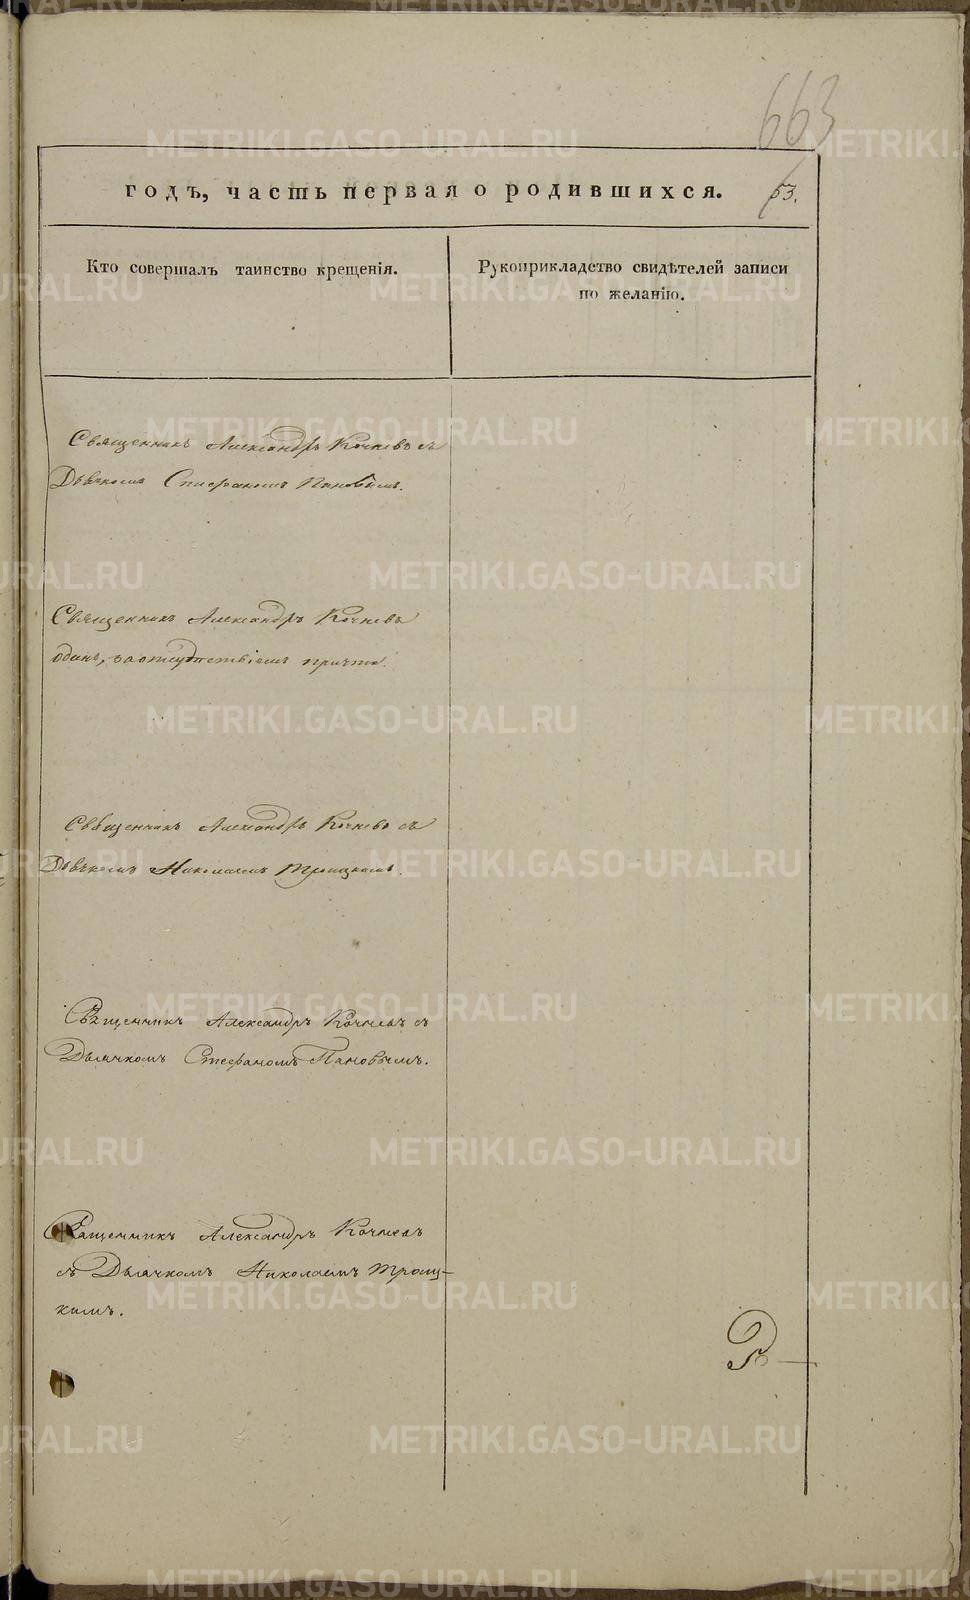 663
годъ, часть первая о родившихся.
53.
Кто совершалъ таинство крещенія.
Рукоприкладство свидѣтелей записи
по желанію.
Священникъ Александръ Кочневъ съ
Дьячкомъ Стефаномъ Пановымъ.
Священникъ Александръ Кочневъ
одинъ, за отсудствіемъ причта.
Священникъ Александръ Кочневъ съ
Дьячкомъ Николаемъ Троицкимъ.
Священникъ Александръ Кочневъ съ
Дьячкомъ Стефаномъ Пановымъ.
Священникъ Александръ Кочневъ
съ Дьячкомъ Николаемъ Троиц-
кимъ.
METRIKI.GASO-URAL.RU